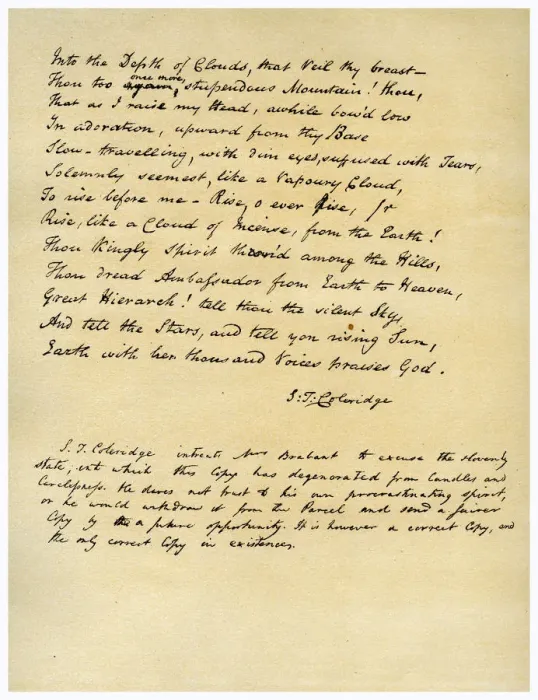 Into the Depth of Clouds, that Veil thy breast—
Thou too again once more, stupendous Mountain! thou,
That as I raise my Head, awhile bow'd low
In adoration, upward from thy Base
Slow-travelling, with dim eyes, suffused with Tears,
Solemnly seemest, like a Vapoury Cloud,
To rise before me— Rise, o ever Rise,
Rise, like a Cloud of Incense, from the Earth!
Thou Kingly Spirit thron'd among the Hills,
Thou dread Ambassador from Earth to Heaven,
Great Hierarch! tell thou the silent Sky,
And tell the Stars, and tell yon rising Sun,
Earth with her thousand Voices praises God.
S: T: Coleridge
S. T. Coleridge intreats Mrs Brabant to excuse the slovenly
state, into which this Copy has degenerated from Candles and
Carelessness. He dares not trust to his own procrastinating spirit,
or he would withdraw it from the Parcel and send a fairer
Copy by a future opportunity. It is however a correct Copy, and
the only correct Copy in existence.